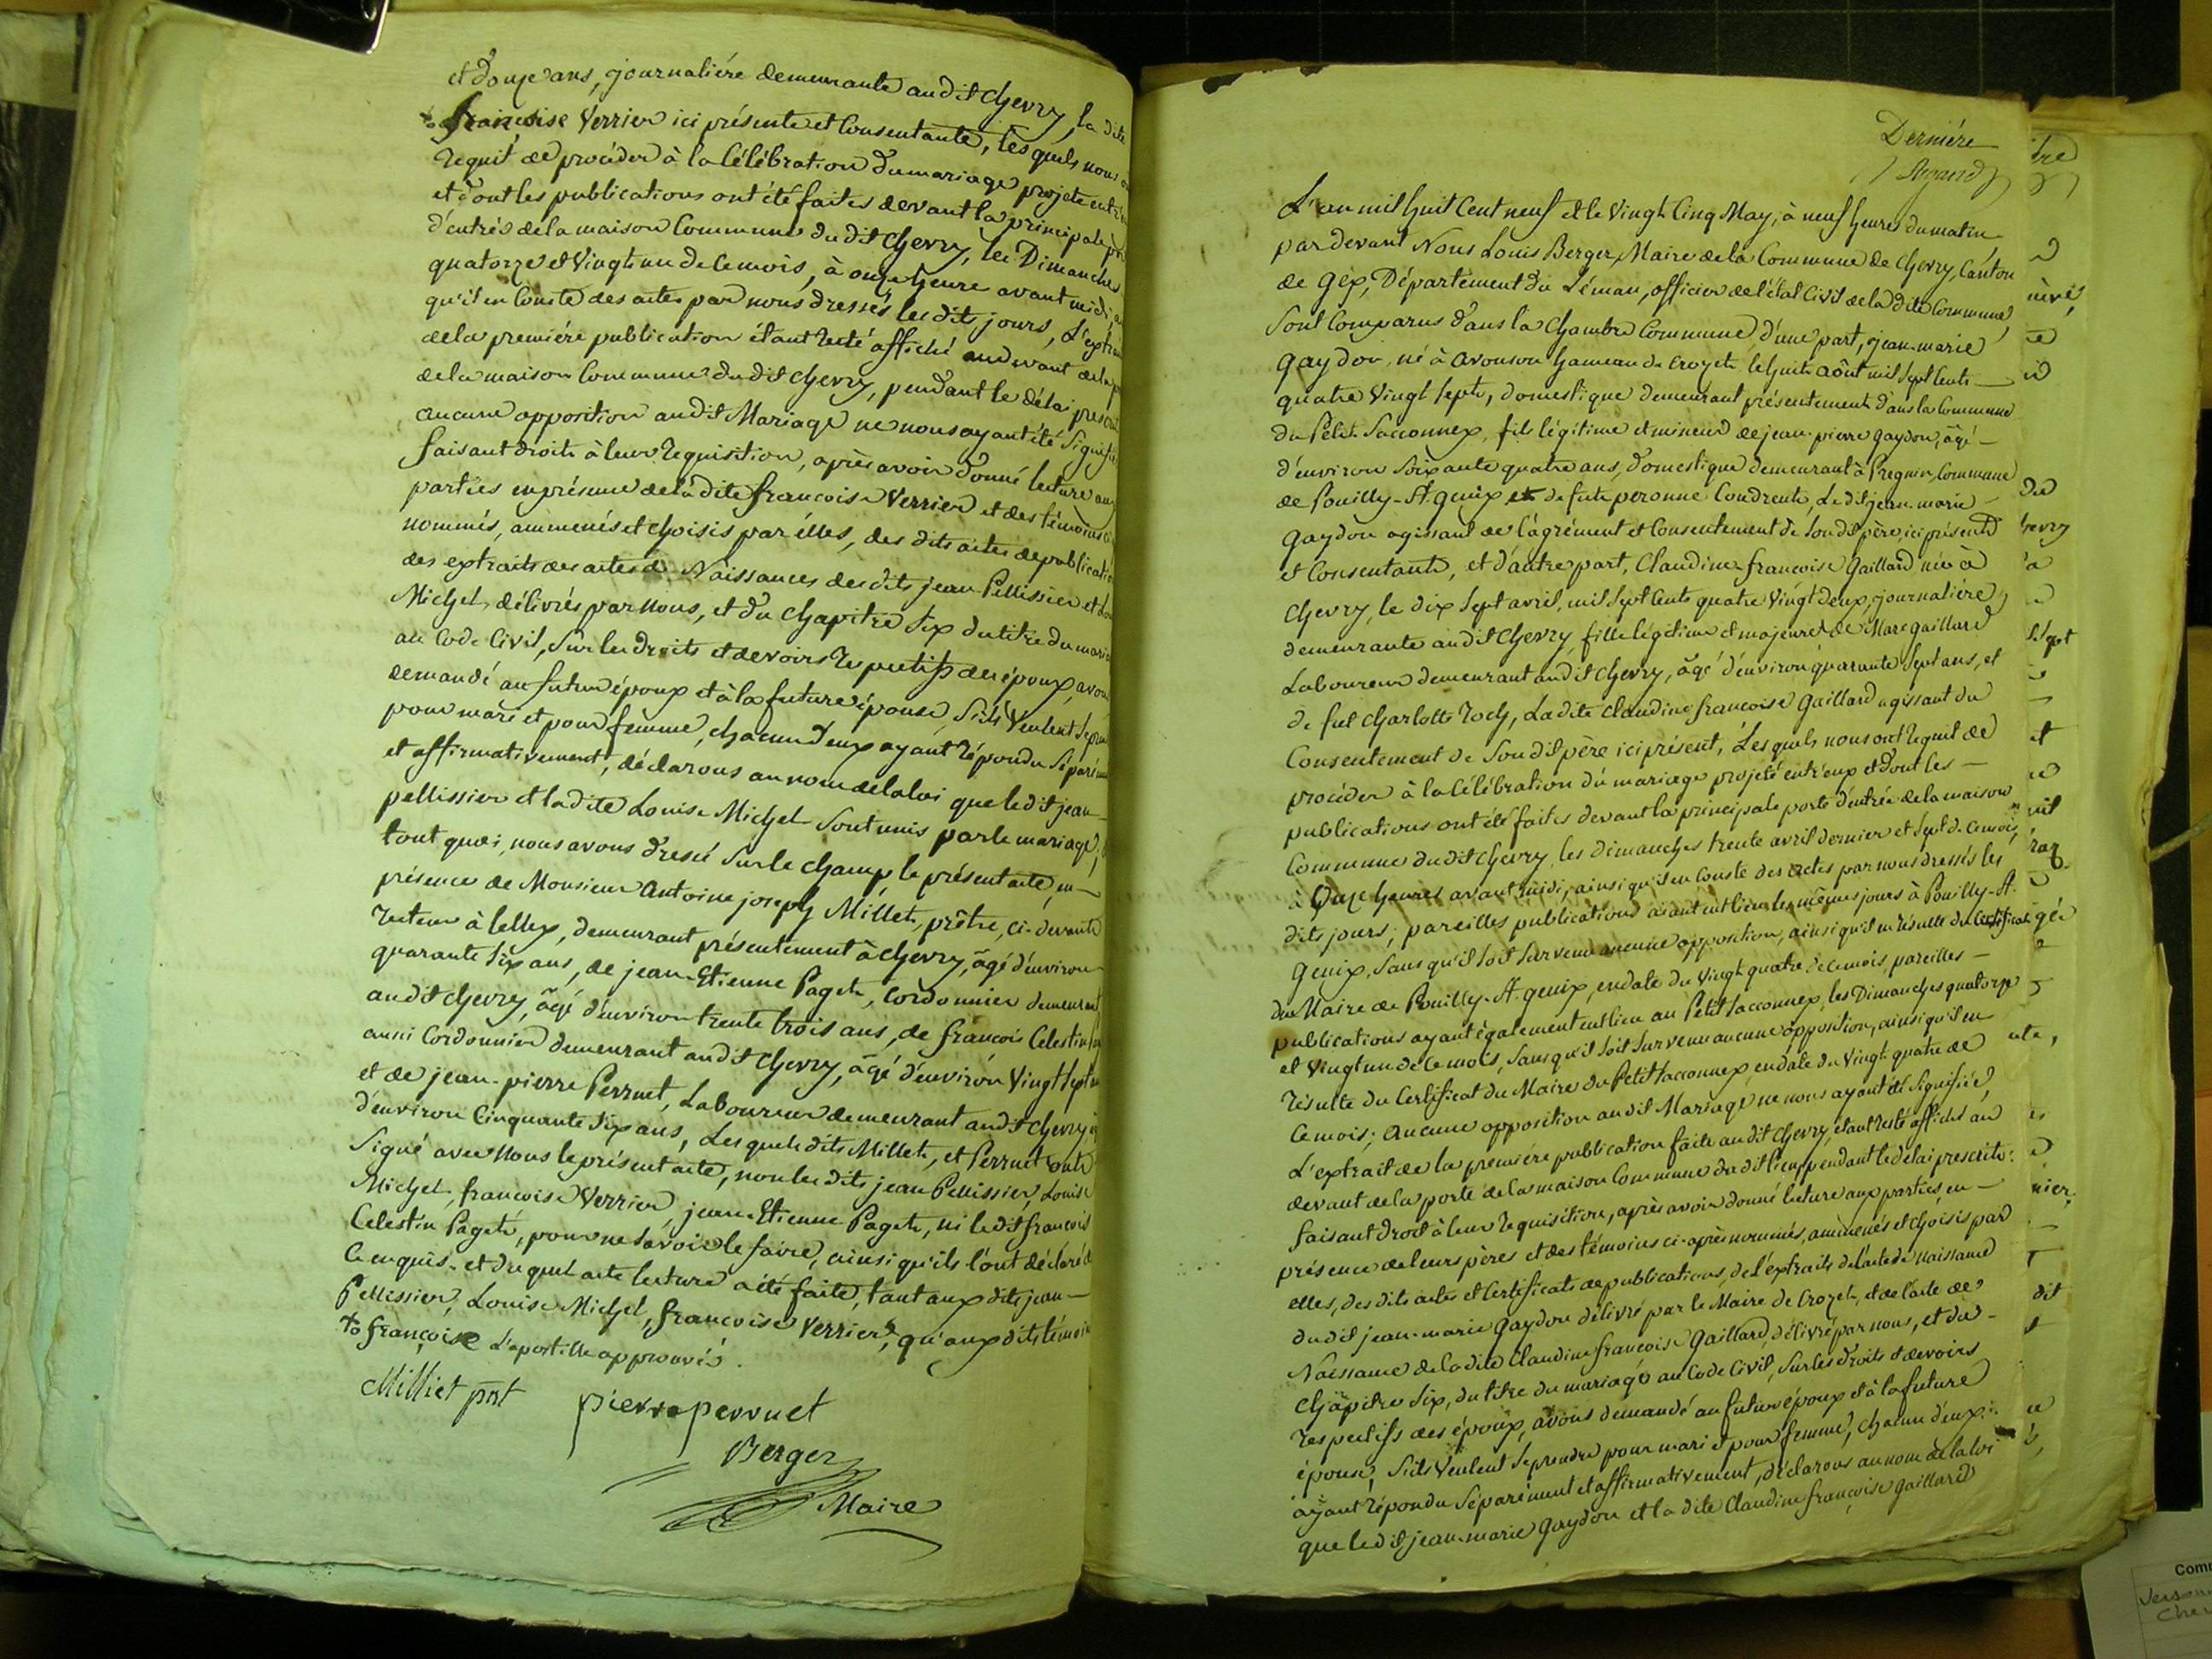 et douze ans, journaliére demeurante audit chevry, la dite
+o francoise Verrier ici présente et Consentante, les quels nous
requit de procéder à la Célébration du mariage projeté entr'
et dont les publications ont été faites devant la principale
d'entrés de la maison Commune du dit chevry, les Dimanches
quatorze et Vingt un de ce mois, à onze heure avant midi,
qu'il en Conste des actes par nous dressés les dits jours, L'extrait
de la premiére publication étant resté affiché au devant de la
de la maison Commune du dit chevry, pendant le délai
aucune opposition au dit Mariage ne nous ayant été Signifi
faisant droit à leur requisition, après avoir donné lecture aux
parties en présence de la dite francoise Verrier et des témoins
nommés, ammenés et choisis par élles, des dits actes de publicati
des extraits des actes de Naissances des dits jean Pellissier et
Michel, délivrés par nous, et du chapitre Six du titre du mari
au Code Civil, Sur les droits et devoirs respectifs des époux, avons
demandé au futur époux et à la future épouse, S'ils Veulent Se
pour mari et pour femme, chacun d'eux ayant répondu Séparém
et affirmativement, déclarons au nom de la loi que le dit jean
pellissier et la dite Louise Michel Sont unis par le mariage,
tout quoi, nous avons dressé Sur le champ le présent acte, en
présence de Monsieur Antoine joseph Millet, prêtre, ci-devant
recteur à lellex, demeurant présentement à chevry, âgé d'environ
quarante Six ans, de jean-Etienne Paget, Cordonnier demeurant
au dit chevry, âgé d'environ trente trois ans, de francois Celestin
aussi Cordonnier demeurant au dit chevry, âgé d'environ Vingt Sept
et de jean-pierre Perruet, Laboureur demeurant au dit chevry
d'environ Cinquante Six ans, Les quels dits Millet, et Perruet ont
Signé avec Nous le présent acte, non les dits jean Pellissier, Louise
Michel, francoise Verrier, jean-Etienne Paget, ni le dit francois
Celestin Paget, pour ne Savoir le faire, ainsi qu'ils l'ont déclaré de
ce enquis. et du quel acte lecture a été faite, tant aux dits jean
Pellissier, Louise Michel, francoise Verrier, qu'aux dits témoin
+o françoise L'apostille approuvés.
Milliet prt
pierre perruet
Berger
Maire
Derniére
L'an mil huit Cent neuf et le Vingt Cinq May, à neuf heures du matin
par devant Nous Louis Berger, Maire de la Commune de chevry, Canton
de Gex, Département du Léman, officier de l'état Civil de la dite Commune,
Sont Comparus dans la chambre Commune d'une part, jean-marie
Gaydon, né à Avouson hameau de Crozet, le huit août mil Sept Cents
quatre Vingt Sept, domestique demeurant présentement dans la Commune
du Petit Sacconnex, fils légitime et mineur de jean-pierre Gaydon, âgé
d'environ Soixante quatre ans, domestique demeurant à Pregnin, Commune
de Pouilly-St. Genix et de fute peronne Coudrente, Le dit jean-marie
Gaydon agissant de l'agrément et Consentement de Son dit père, ici présent
et Consentant, et d'autre part, Claudine francoise Gaillard née à
Chevry, le dix Sept avril, mil Sept Cents quatre Vingt deux, journaliére,
demeurante au dit chevry, fille légitime et majeure de Marc Gaillard
Laboureur demeurant au dit chevry, âgé d'environ quarante Sept ans, et
de fut charlotte roch, La dite Claudine francoise Gaillard agissant du
Consentement de Son dit père ici présent, Les quels nous ont requit de
procéder à la Célébration du mariage projeté entr'eux et dont les
publications ont été faites devant la principale porte d'entrée de la maison
Commune du dit chevry, les dimanches trente avril dernier et Sept de ce mois,
à Onze heures avant midi, ainsi qu'il en Conste des actes par nous dressés les
dits jours; pareilles publications aiant eut lieu les mêmes jours à Pouilly-St.
Genix, Sans qu'il Soit Survenu aucune opposition, ainsi qu'il en résulte du Certificat
du Maire de Pouilly-St. Genix, en date du Vingt quatre de ce mois, pareilles
publications ayant également eut lieu au Petit Sacconnex, les Dimanches quatorze
et Vingt un de ce mois, Sans qu'il Soit Survenu aucune opposition, ainsi qu'il en
résulte du Certificat du Maire du Petit Sacconnex, en date du Vingt quatre de
ce mois; Aucune opposition au dit Mariage ne nous ayant été Signifiée,
L'extrait de la premiére publication faite au dit chevry, étant resté affiché au
devant de la porte de la maison Commune du dit lieu, pendant le délai prescrit:
faisant droit à leur requisition, après avoir donné lecture aux parties, en
présence de leurs pères et des témoins ci-après nommés, amménés et choisis par
elles, des dits actes et Certificats de publications, de l'éxtrait de l'acte de naissance
du dit jean-marie Gaydon délivré par le Maire de Crozet, et de l'acte de
Naissance de la dite Claudine francoise Gaillard, délivré par nous, et du
Chapitre Six, du titre du mariage au Code Civil, Sur les droits et devoirs
respectifs des époux, avons demandé au futur époux et à la future
épouse, S'ils Veulent Se prendre pour mari et pour femme, chacun d'eux
ayant répondu Séparément et affirmativement, déclarons au nom de la loi
que le dit jean-marie Gaydon et la dite Claudine françoise Gaillard